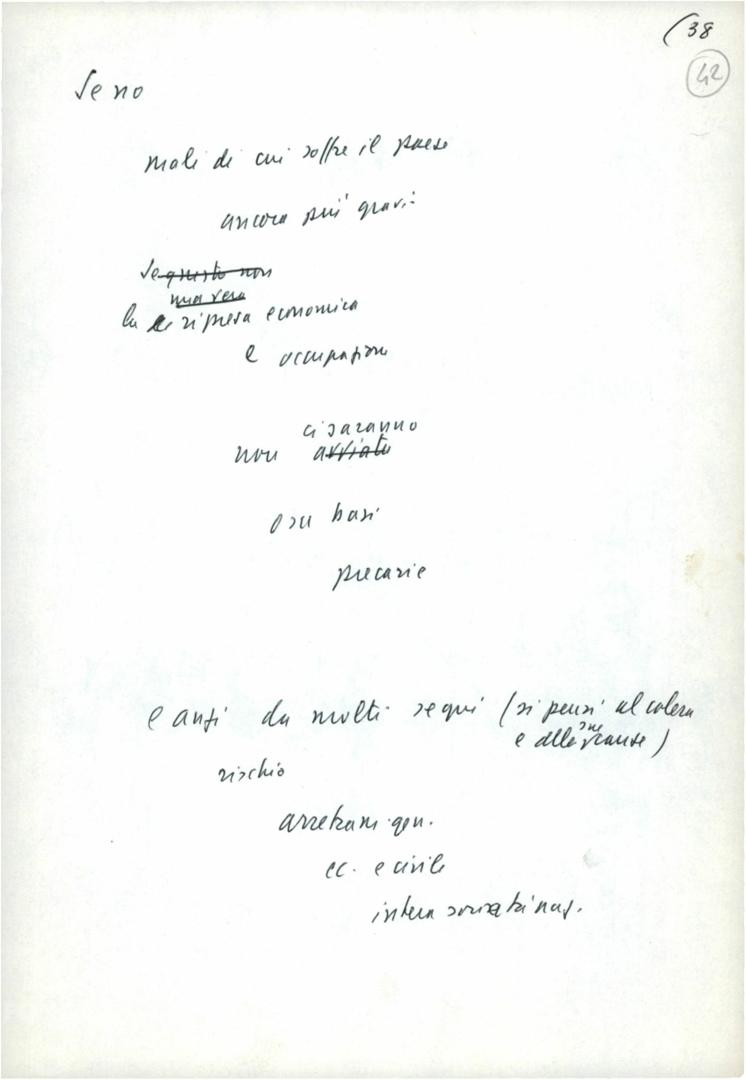 (38
42
Se no
mali di cui soffre il paese
ancora più gravi:
Se questo non
una vera
la ripresa economica
e occupazione
ci saranno
non avviate
o su basi
precarie
e anzi da molti segni (si pensi al colera
e alle sue cause)
rischio
arretram. gen.
ec. e civile
intera società naz.